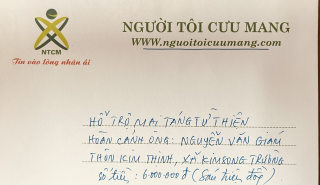 NGƯỜI TÔI CƯU MANG
www.nguoitoicuumang.com
NTCM
Tin vào lòng nhân ái
HỖ TRỢ MAI TÁNG TỪ THIỆN
HOÀN CẢNH ÔNG: NGUYỄN VĂN GIÁM
THÔN KIM THỊNH, XÃ KIM SONG TRƯỜNG
SỐ TIỀN: 6.000.000đ (Sáu triệu đồng)